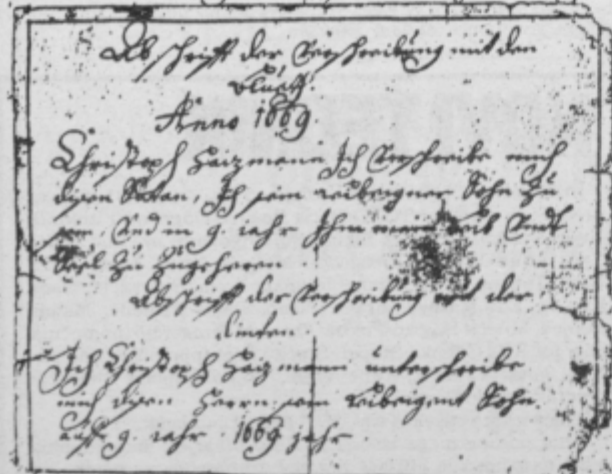 Abschrifft der Verschreibung mit dem
bluett.
Anno 1669
Christoph Haizmann Ich Verschreibe mich
disen Satan, Ich sein leibeigner Sohn zu
sein, Und in 9. iahr Ihm mein Leib Undt
Seel zu Zugeheren
Abschrifft der Verschreibung mit der
dinten
Ich Christoph Haizmann unterschreibe
mich disen Herrn sein leibeigent Sohn
auff 9. iahr 1669 jahr